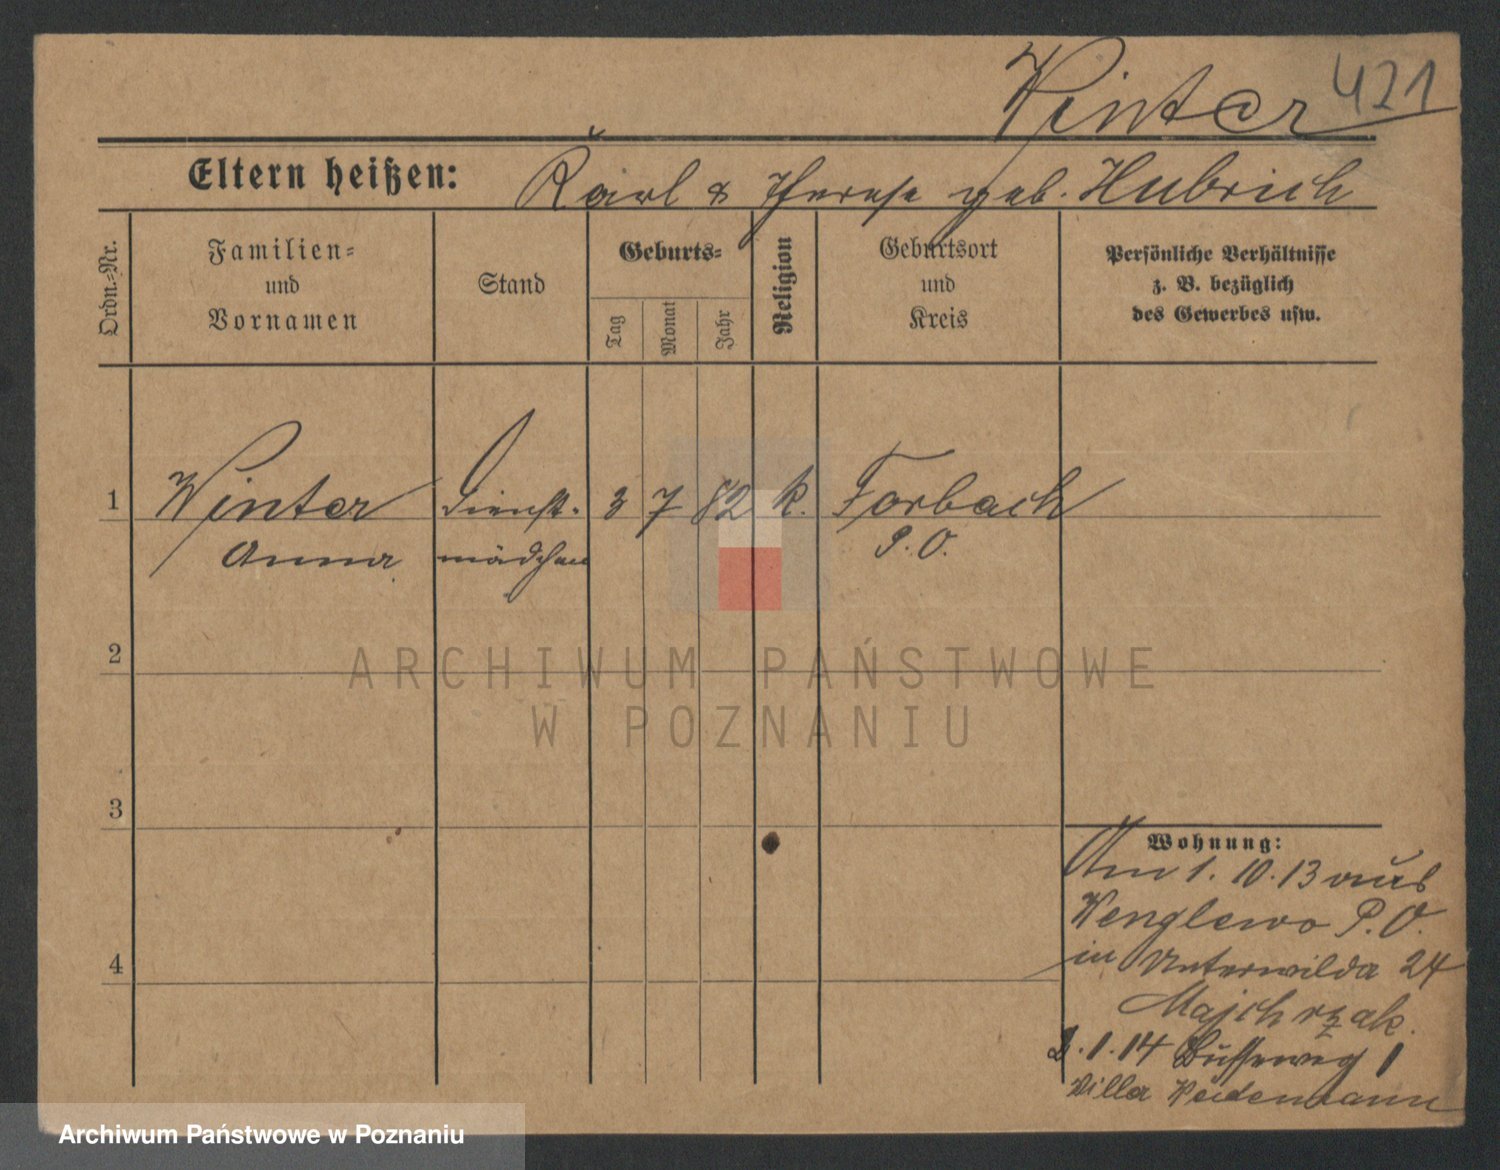 421
Winter
Eltern heißen: Karl & Therese geb. Hubrich
Ordn.-Nr.
Familien-
und
Vornamen
Stand
Geburts-
Tag
Monat
Jahr
Religion
Geburtsort
und
Kreis
Persönliche Verhältnisse
z. B. bezüglich
des Gewerbes usw.
1 Winter Dienst- 3 7 82 k. Forbach
Anna mädchen P. O.
2
3
4
Wohnung:
Am 1. 10. 13 aus
Wenglewo P. O.
in Unterwilda 24
Majchrzak.
2. 1. 14 Busseweg 1
Villa Weidemann
ARCHIWUM PAŃSTWOWE
W POZNANIU
Archiwum Państwowe w Poznaniu